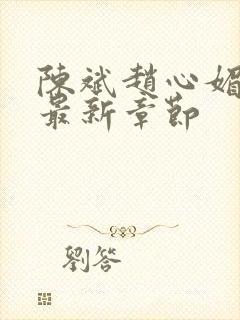 陳斌趙心媚
最新章節
劉答